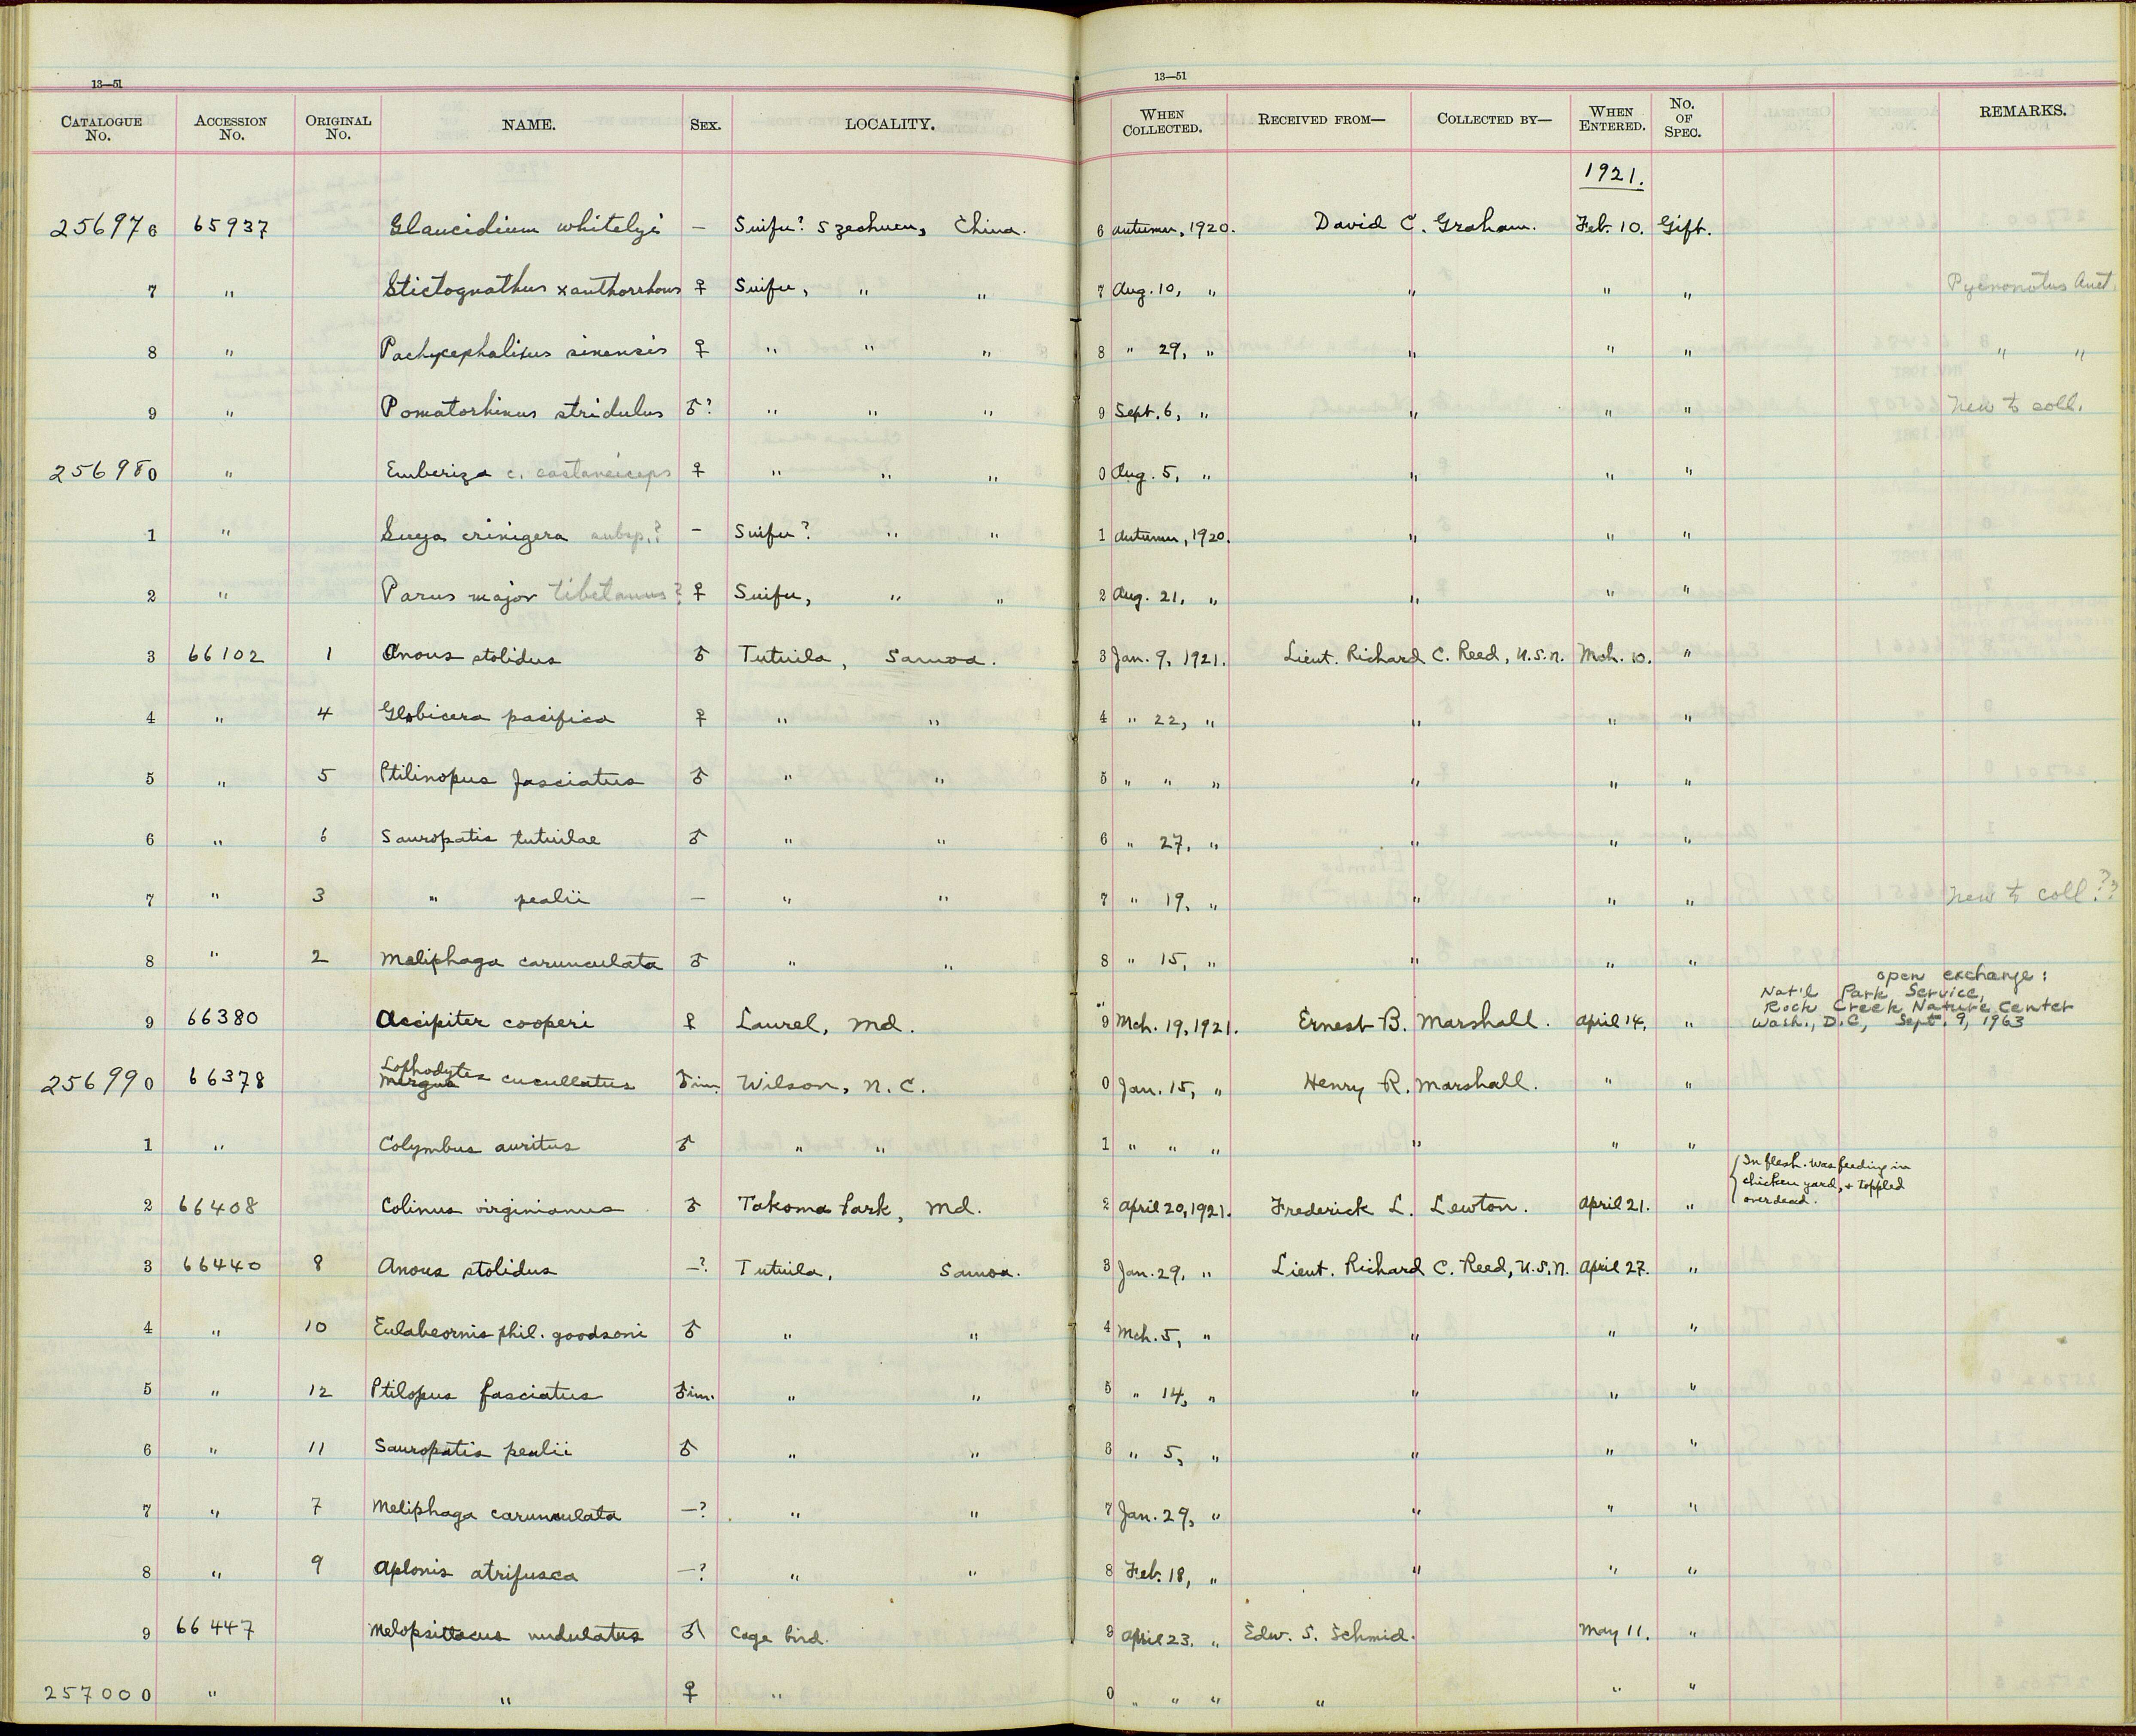 13—51
13—51
CATALOGUE No. ACCESSION No. ORIGINAL No. NAME. SEX. LOCALITY. WHEN COLLECTED. RECEIVED FROM— COLLECTED BY— WHEN ENTERED. No. OF SPEC. REMARKS.
1921.
256976 65937 Glaucidium whitelyi — Suifu? Szechuen, China. 6 Autumn, 1920. David C. Graham. Feb. 10. Gift.
7 " Stictognathus xanthorrhous ♀ Suifu, " " 7 Aug. 10, " " " " Pycnonotus Auct.
8 " Pachycephalixus sinensis ♀ " " " 8 " 29, " " " " " "
9 " Pomatorhinus stridulus ♂? " " " 9 Sept. 6, " " " " New to coll.
256980 " Emberiza c. castaneiceps ♀ " " " 0 Aug. 5, " " " "
1 " Suya crinigera subsp.? — Suifu? " " 1 Autumn, 1920. " " "
2 " Parus major tibetanus? ♀ Suifu, " " 2 Aug. 21, " " " "
3 66102 1 Anous stolidus ♂ Tutuila, Samoa. 3 Jan. 9, 1921. Lieut. Richard C. Reed, U.S.N. Mch. 10. "
4 " 4 Globicera pacifica ♀ " " 4 " 22, " " " "
5 " 5 Ptilinopus fasciatus ♂ " " 5 " " " " " "
6 " 6 Sauropatis tutuilae ♂ " " 6 " 27, " " " "
7 " 3 " pealii — " " 7 " 19, " " " " New to coll.??
8 " 2 Meliphaga carunculata ♂ " " 8 " 15, " " " "
open exchange:
Nat'l Park Service,
Rock Creek Nature Center
Wash., D.C., Sept. 9, 1963
9 66380 Accipiter cooperi ♀ Laurel, Md. 9 Mch. 19, 1921. Ernest B. Marshall. April 14, "
Lophodytes
256990 66378 Mergus cucullatus ♂ im. Wilson, N.C. 0 Jan. 15, " Henry R. Marshall. " "
1 " Colymbus auritus ♂ " " 1 " " " " " "
In flesh. Was feeding in
chicken yard, & toppled
over dead.
2 66408 Colinus virginianus ♂ Takoma Park, Md. 2 April 20, 1921. Frederick L. Lewton. April 21. "
3 66440 8 Anous stolidus —? Tutuila, Samoa. 3 Jan. 29, " Lieut. Richard C. Reed, U.S.N. April 27. "
4 " 10 Eulabeornis phil. goodsoni ♂ " " 4 Mch. 5, " " " "
5 " 12 Ptilopus fasciatus ♂ im. " " 5 " 14, " " " "
6 " 11 Sauropatis pealii ♂ " " 6 " 5, " " " "
7 " 7 Meliphaga carunculata —? " " 7 Jan. 29, " " " "
8 " 9 Aplonis atrifusca —? " " 8 Feb. 18, " " " "
9 66447 Melopsittacus undulatus ♂ Cage bird. 9 April 23. " Edw. S. Schmid. May 11. "
257000 " " ♀ " 0 " " " " " "